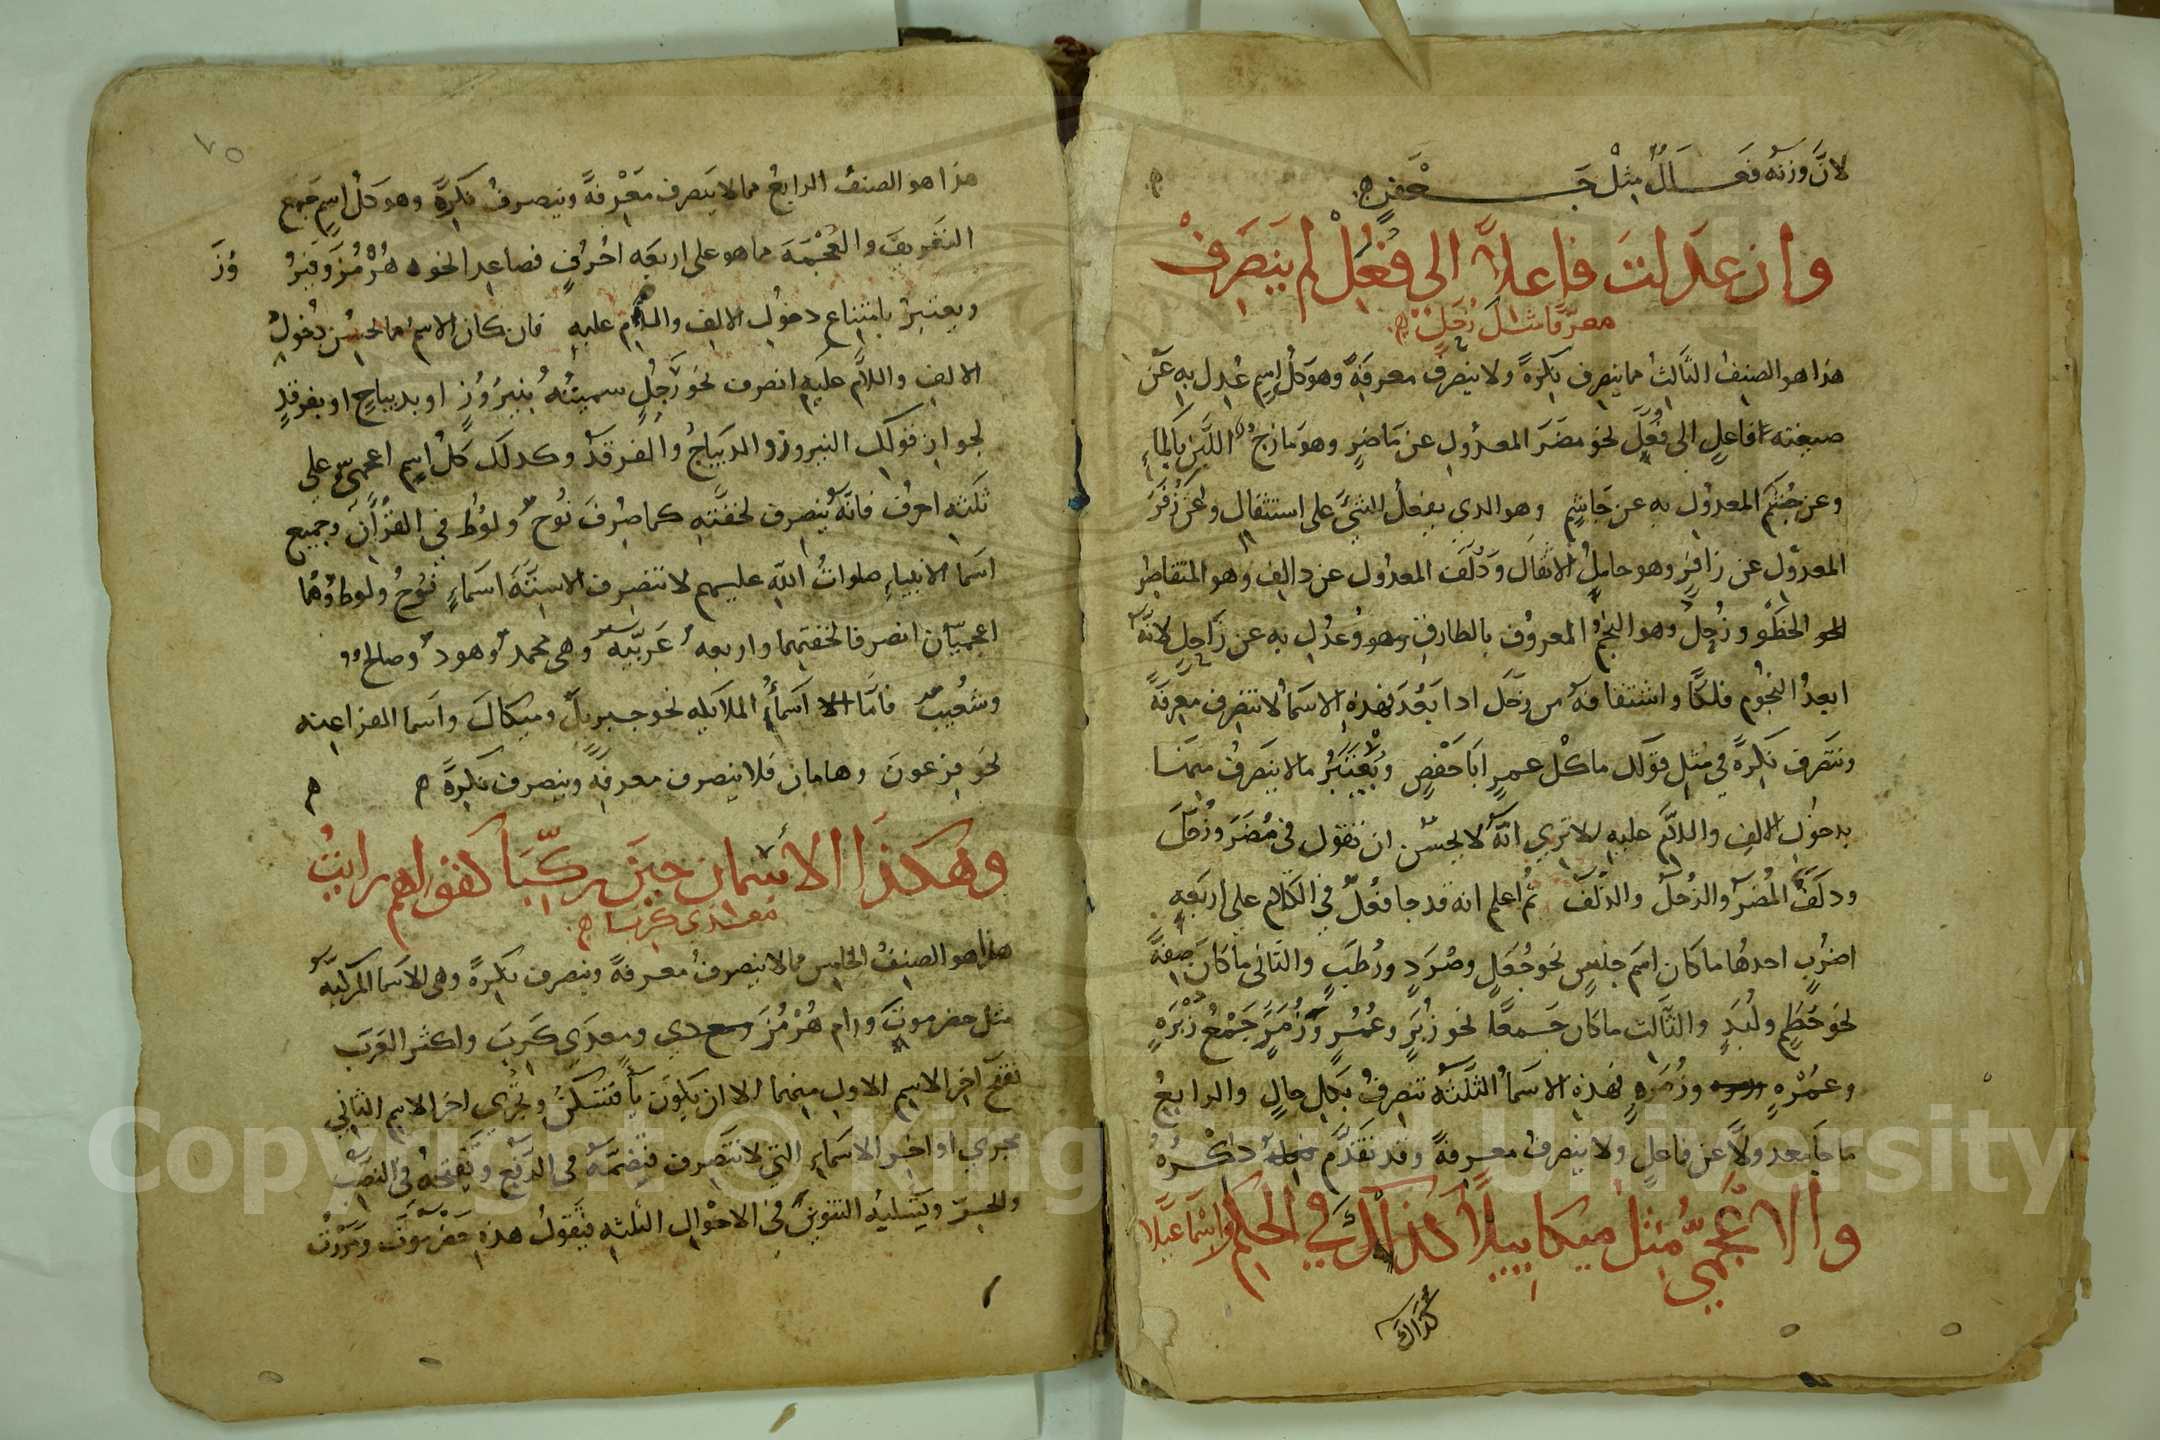 لانَّ وزنه فَعْلَلُ مِثْلُ جَعْفَرٍ
وان عَدَلتَ فاعلاً الى فُعَلْ لم يَنصَرِفْ
معرّفًا مثل زُحَل
هذا هو الصنف الثالث مما ينصرف نكرةً ولا ينصرف معرفةً وهو كل اسم عُدِل به عَن
صيغته فاعلٍ الى فُعَلَ نحو مضَرَ المعدولِ عن مَاضرٍ وهو مازج اللبن بالماءِ
وعن جُشَم المعدول به عن جَاشِمٍ وهو الذي يفعلُ الشيَ على استثقال وعن زُفَرَ
المعدول عن زافِرٍ وهو حامِلُ الاثقال ودُلَف المعدول عن دالف وهو المتقاطر
الخطو وزُحل وهو النجم المعروف بالطارق وهو وعُدِل به عن زَاحِلٍ لانَّه
ابعدُ النجوم فلكًا واشتقاقه من زحَل اذا بَعُدَ فهذهِ الاسماُ لا تنصرف معرفةً
وتنصَرف نكرةً في مثل قولك ما كلُّ عمرٍ ابَا حَفْصٍ ويُعْتَبَرُ ما لا ينصَرفُ منها
بدخولِ الالف واللاَّم عليهِ الا تري انّه لا يحسُن ان تقول في مُضَرَ وزُحَلَ
ودلَفَ المُضَر والزُحَلُ والدُلَفُ ثم اعلم انه قد جا فُعَلُ في الكلام على اربَعهِ
اضرُبٍ احدهُا ما كان اسم جنسٍ نحو جُعَلٍ وصُرَدٍ ورُطَبٍ والثاني ما كان صِفةً
نحو حُطَمٍ ولُبَدٍ والثّالث ما كان جَمعًا نحو زُبَرٍ وعُمَرٍ وَزُمَرٍ جَمْعُ زُبْرَهٍ
وعُمْرَهٍ وزُمرَهٍ فهذهِ الاسماُ الثَلثهُ تنصرفُ بكل حالٍ والرابعُ
ما جا معدولاً عن فاعلٍ ولا ينصرفُ معرفةً وقد تقدَّم ذكرُهُ
والاعْجَميُّ مثلُ ميكاييلاَ كذاكَ في الحكم واسْمَاعيلا
كذاك
٧٥
هذا هو الصنف الرابعُ مما لا ينصرف مَعْرفةً وينصرفُ نكِرةً وهو كلُ اسمٍ جَمع
التعريفَ والعُجْمَهَ مما هو على اربعه احْرُفٍ فصاعدا نحو هُرْمُزَ وفَيْرُ وُزَ
ويعتبرُ بامتناع دخول الالف واللام عليه فان كان الاسم مما يحسُن دُخولُ
الالف واللاَّم عليه انصرف نحو رَجُلٍ سميتُهُ بنَيرُوُزٍ او بديباجٍ او بفرقدٍ
لجواز قولك النيروز والديباجُ والفرقدُ وكذلك كلُ اسمٍ اعجميٍّ على
ثلثه احرف فانّه ينصرف لخفّته كما صُرفَ نُوحٌ ولوُطٌ في القرأن وجميع
اسَما الانبياءِ صلواتُ اللهِ عليهم لا تنصرف الا ستَّةَ اسمَاءٍ نُوحٌ ولوطٌ وهُما
اعجميّان انصرفا لخفتهما واربعه عَربيّه وهى محمدٌ وهودٌ وصالحٌ
وشُعيبٌ فامَّا اسَماُء الملايكه نحو جبريلَ وميكالَ واسَما الفراعنه
نحو فِرعونَ وهامان فلا ينصرف معرفهً وينصرف نكرةً
وهكذا الاسْمان حينَ ركّبَا كقولهم رايتُ
معدي كربا
هذا هو الصنفُ الخامِس مما لا ينصرفُ معرفةً وينصرف نكرةً وهى الاسَما المركبّه
مثل حضرموت ورام هُرْمُزَ ومعدي كَرِبَ واكثر العَرب
تفتح اخِر الاسم الاول منهما الا ان يكوُن ياً فتسَكنُ وتُجري اخر الاسم الثاني
مجري اواخر الاسماءِ التي لا تنصرف فيضمّه في الرَفْع ويَفتحهُ في النصب
والجرّ ويَسْلبه التنوينَ في الاحْوالِ الثلثه فيقولُ هذهِ حَضْرَموْتُ ومرَرْتُ